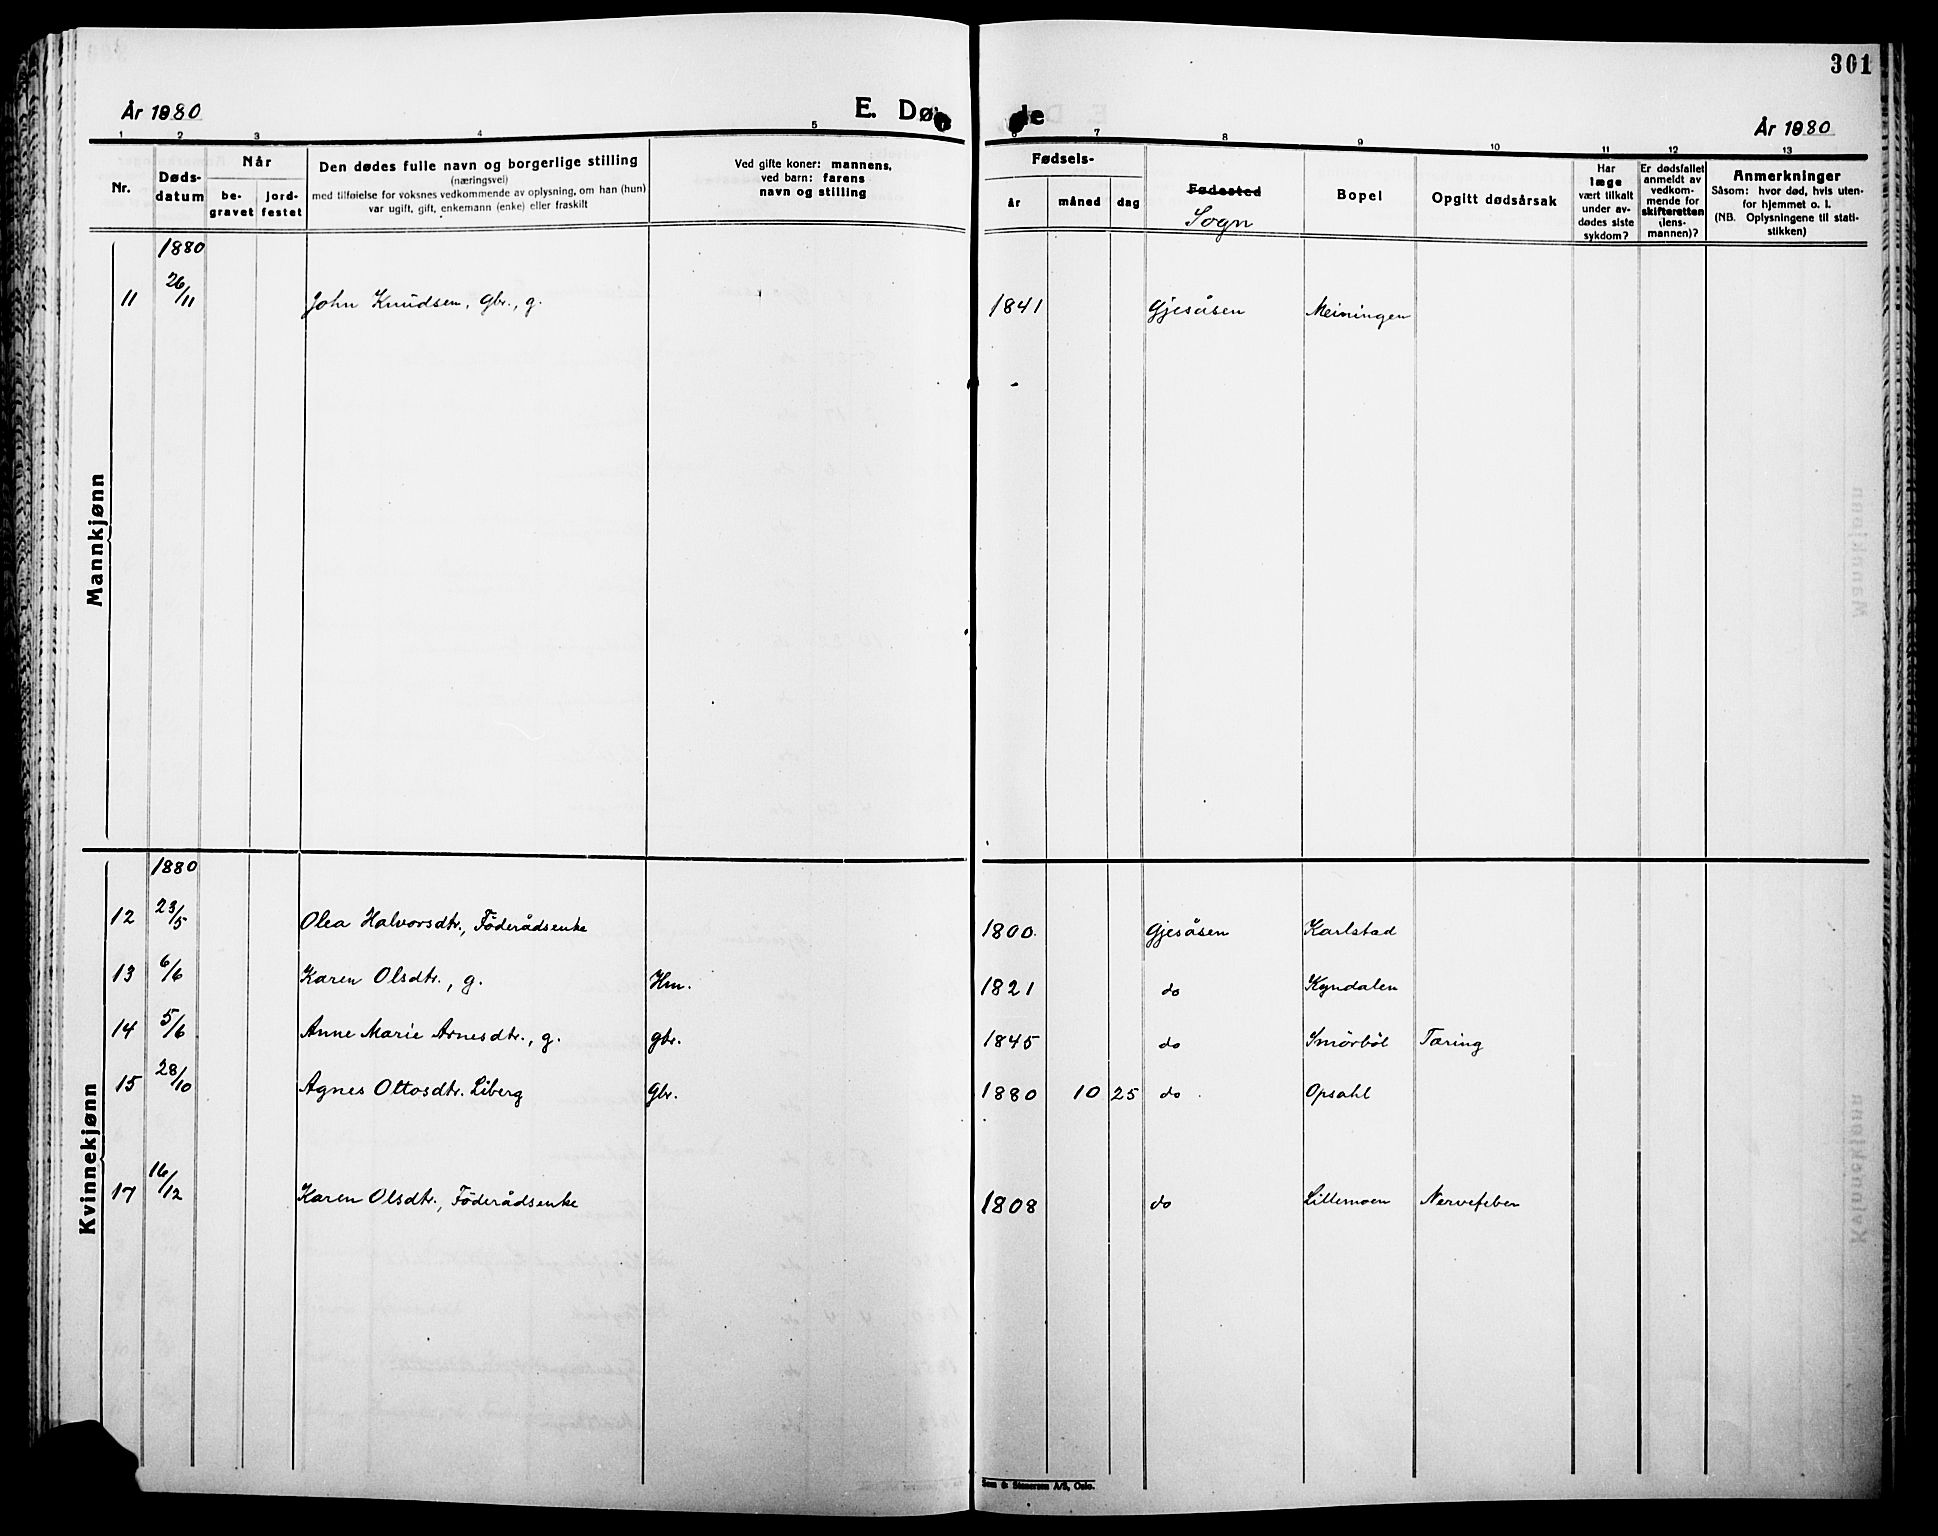 301
År 1880
E. Døde
År 1880
1 2 3 4 5 6 7 8 9 10 11 12 13
Nr.
Døds-
datum
Når
be-
gravet
jord-
festet
Den dødes fulle navn og borgerlige stilling
(næringsvei)
med tilføielse for voksnes vedkommende av oplysning, om han (hun)
var ugift, gift, enkemann (enke) eller fraskilt
Ved gifte koner: mannens,
ved barn: farens
navn og stilling
Fødsels-
år
måned
dag
Fødested
Sogn
Bopel
Opgitt dødsårsak
Har
læge
vært tilkalt
under av-
dødes siste
sykdom?
Er dødsfallet
anmeldt av
vedkom-
mende for
skifteretten
(lens-
mannen)?
Anmerkninger
Såsom: hvor død, hvis uten-
for hjemmet o. l.
(NB. Oplysningene til stati-
stikken)
Mannkjønn
1880
11 26/11 John Knudsen, Gbr., g. 1841 Gjesåsen Meiningen
Kvinnekjønn
1880
12 23/5 Olea Halvorsdtr., Föderådsenke 1800. Gjesåsen Karlstad
13 6/6 Karen Olsdtr., g. Hm. 1821 do Kyndalen
14 5/6 Anne Marie Arnesdtr., g. gbr. 1845 do Smörböl Tæring
15 28/10 Agnes Ottosdtr. Liberg Gbr. 1880 10 25 do Opsahl
17 16/12 Karen Olsdtr., Föderådsenke 1808 do Lillemoen Nervefeber
Sem & Stenersen A/S, Oslo.